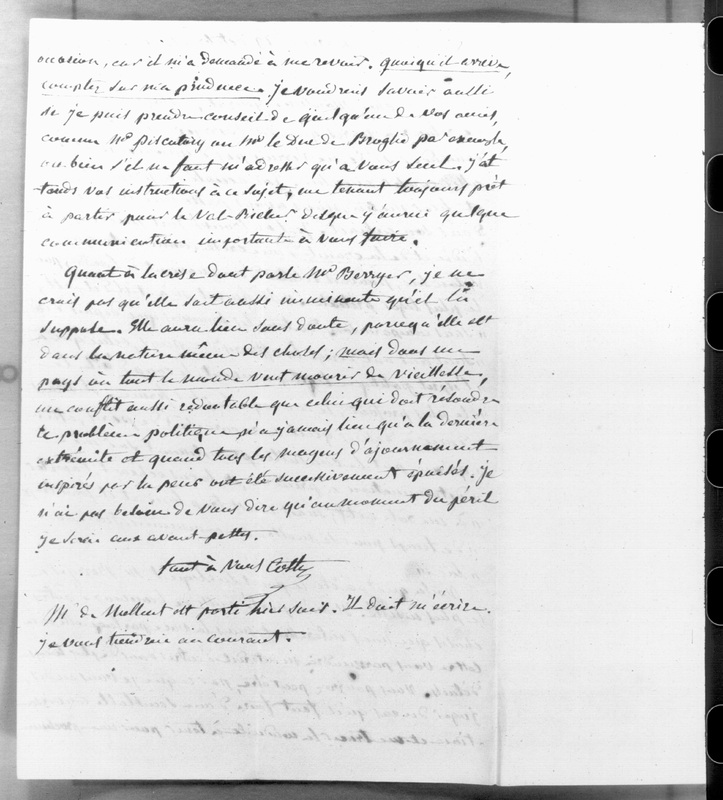 occasion, car il m'a demandé à me revoir. quoiqu'il arrive,
comptez sur ma prudence. je voudrais savoir aussi
si je puis prendre conseil de quelqu'un de vos amis,
comme Mr Piscatory ou Mr le Duc de Broglie par exemple,
ou bien s'il ne faut m'adresser qu'à vous seul. j'at
tends vos instructions à ce sujet, me tenant toujours prêt
à partir pour le Val-Richer dès que j'aurai quelque
communication importante à vous faire.
Quant à la crise dont parle Mr Berryer, je ne
crois pas qu'elle soit aussi imminente qu'il la
suppose. Elle aura lieu sans doute, parcequ'elle est
dans la nature même des choses; mais dans un
pays où tout le monde veut mourir de vieillesse,
un conflit aussi redoutable que celui qui doit résoudre
le problème politique n'a jamais lieu qu'à la dernière
extrémité et quand tous les moyens d'ajournement
inspirés par la peur ont été successivement épuisés. je
n'ai pas besoin de vous dire qu'au moment du péril
je serai aux avant postes.
tout à vous
Mr de est parti hier soir. Il doit m'écrire.
je vous tiendrai au courant.